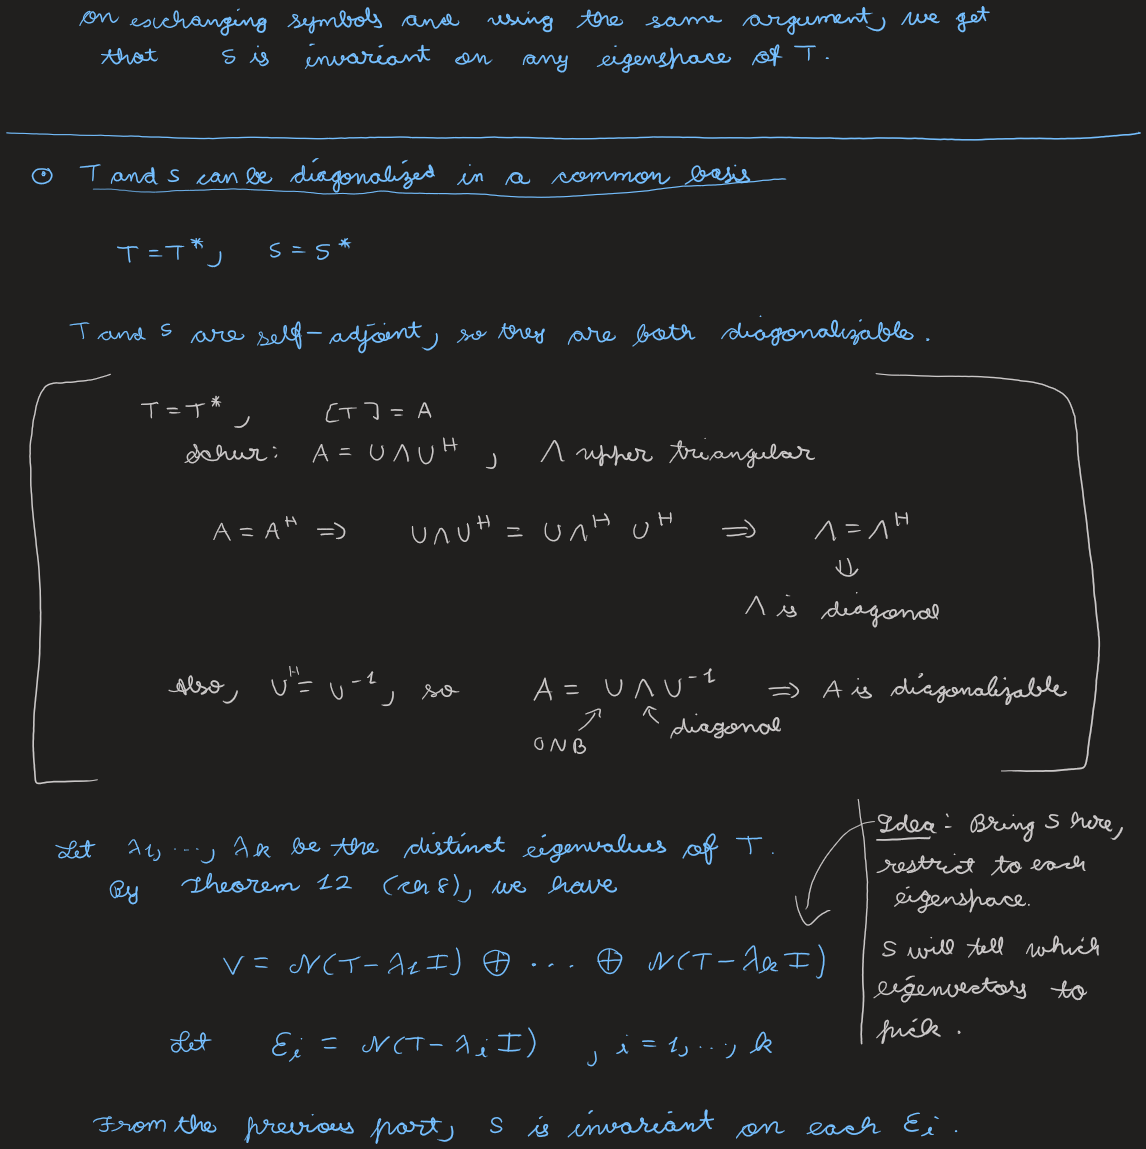 on exchanging symbols and using the same argument, we get
that S is invariant on any eigenspace of T.
⊙ T and S can be diagonalized in a common basis
T = T*, S = S*
T and S are self-adjoint, so they are both diagonalizable.
T = T*, [T] = A
Schur: A = UΛU^H, Λ upper triangular
A = A^H ⇒ UΛU^H = UΛ^H U^H ⇒ Λ = Λ^H
⇓
Λ is diagonal
Also, U^H = U^-1, so A = UΛU^-1 ⇒ A is diagonalizable
ONB diagonal
Let λ1, ..., λk be the distinct eigenvalues of T.
By Theorem 12 (ch 8), we have
V = N(T-λ1I) ⊕ ... ⊕ N(T-λkI)
Let Ei = N(T-λiI), i = 1, ..., k
From the previous part, S is invariant on each Ei.
Idea: Bring S here,
restrict to each
eigenspace.
S will tell which
eigenvectors to
pick.